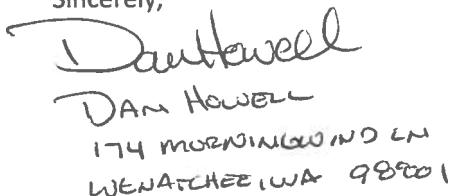 Sincerely,
Dan Howell
DAN HOWELL
174 MORNINGWIND LN
WENATCHEE, WA 98801